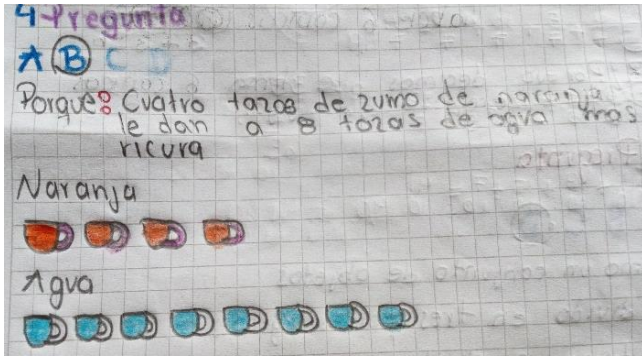 4-Pregunta
A B C D
Porque: Cuatro tazas de zumo de naranja
le dan a 8 tozas de agua mas
ricura
Naranja
Agua